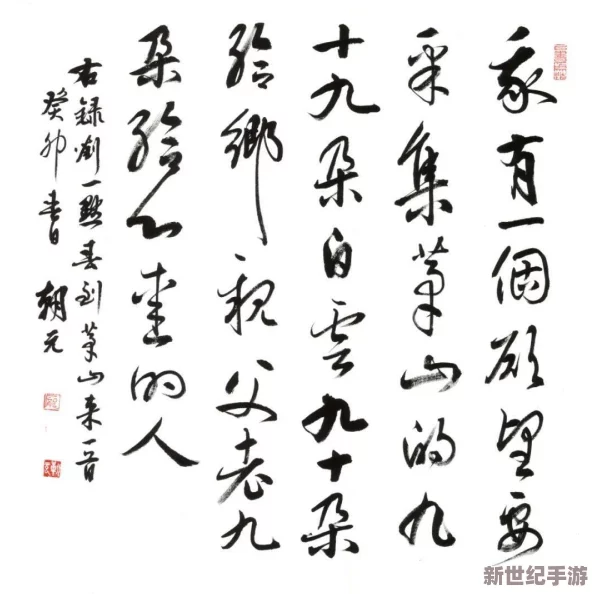 我有一個願望要
采集茅山的九
十九朵白雲九十朵
給鄉親父老九
朵給心愛的人
右録劉一點春到茅山來一首
癸卯春日 朝元
新世纪手游